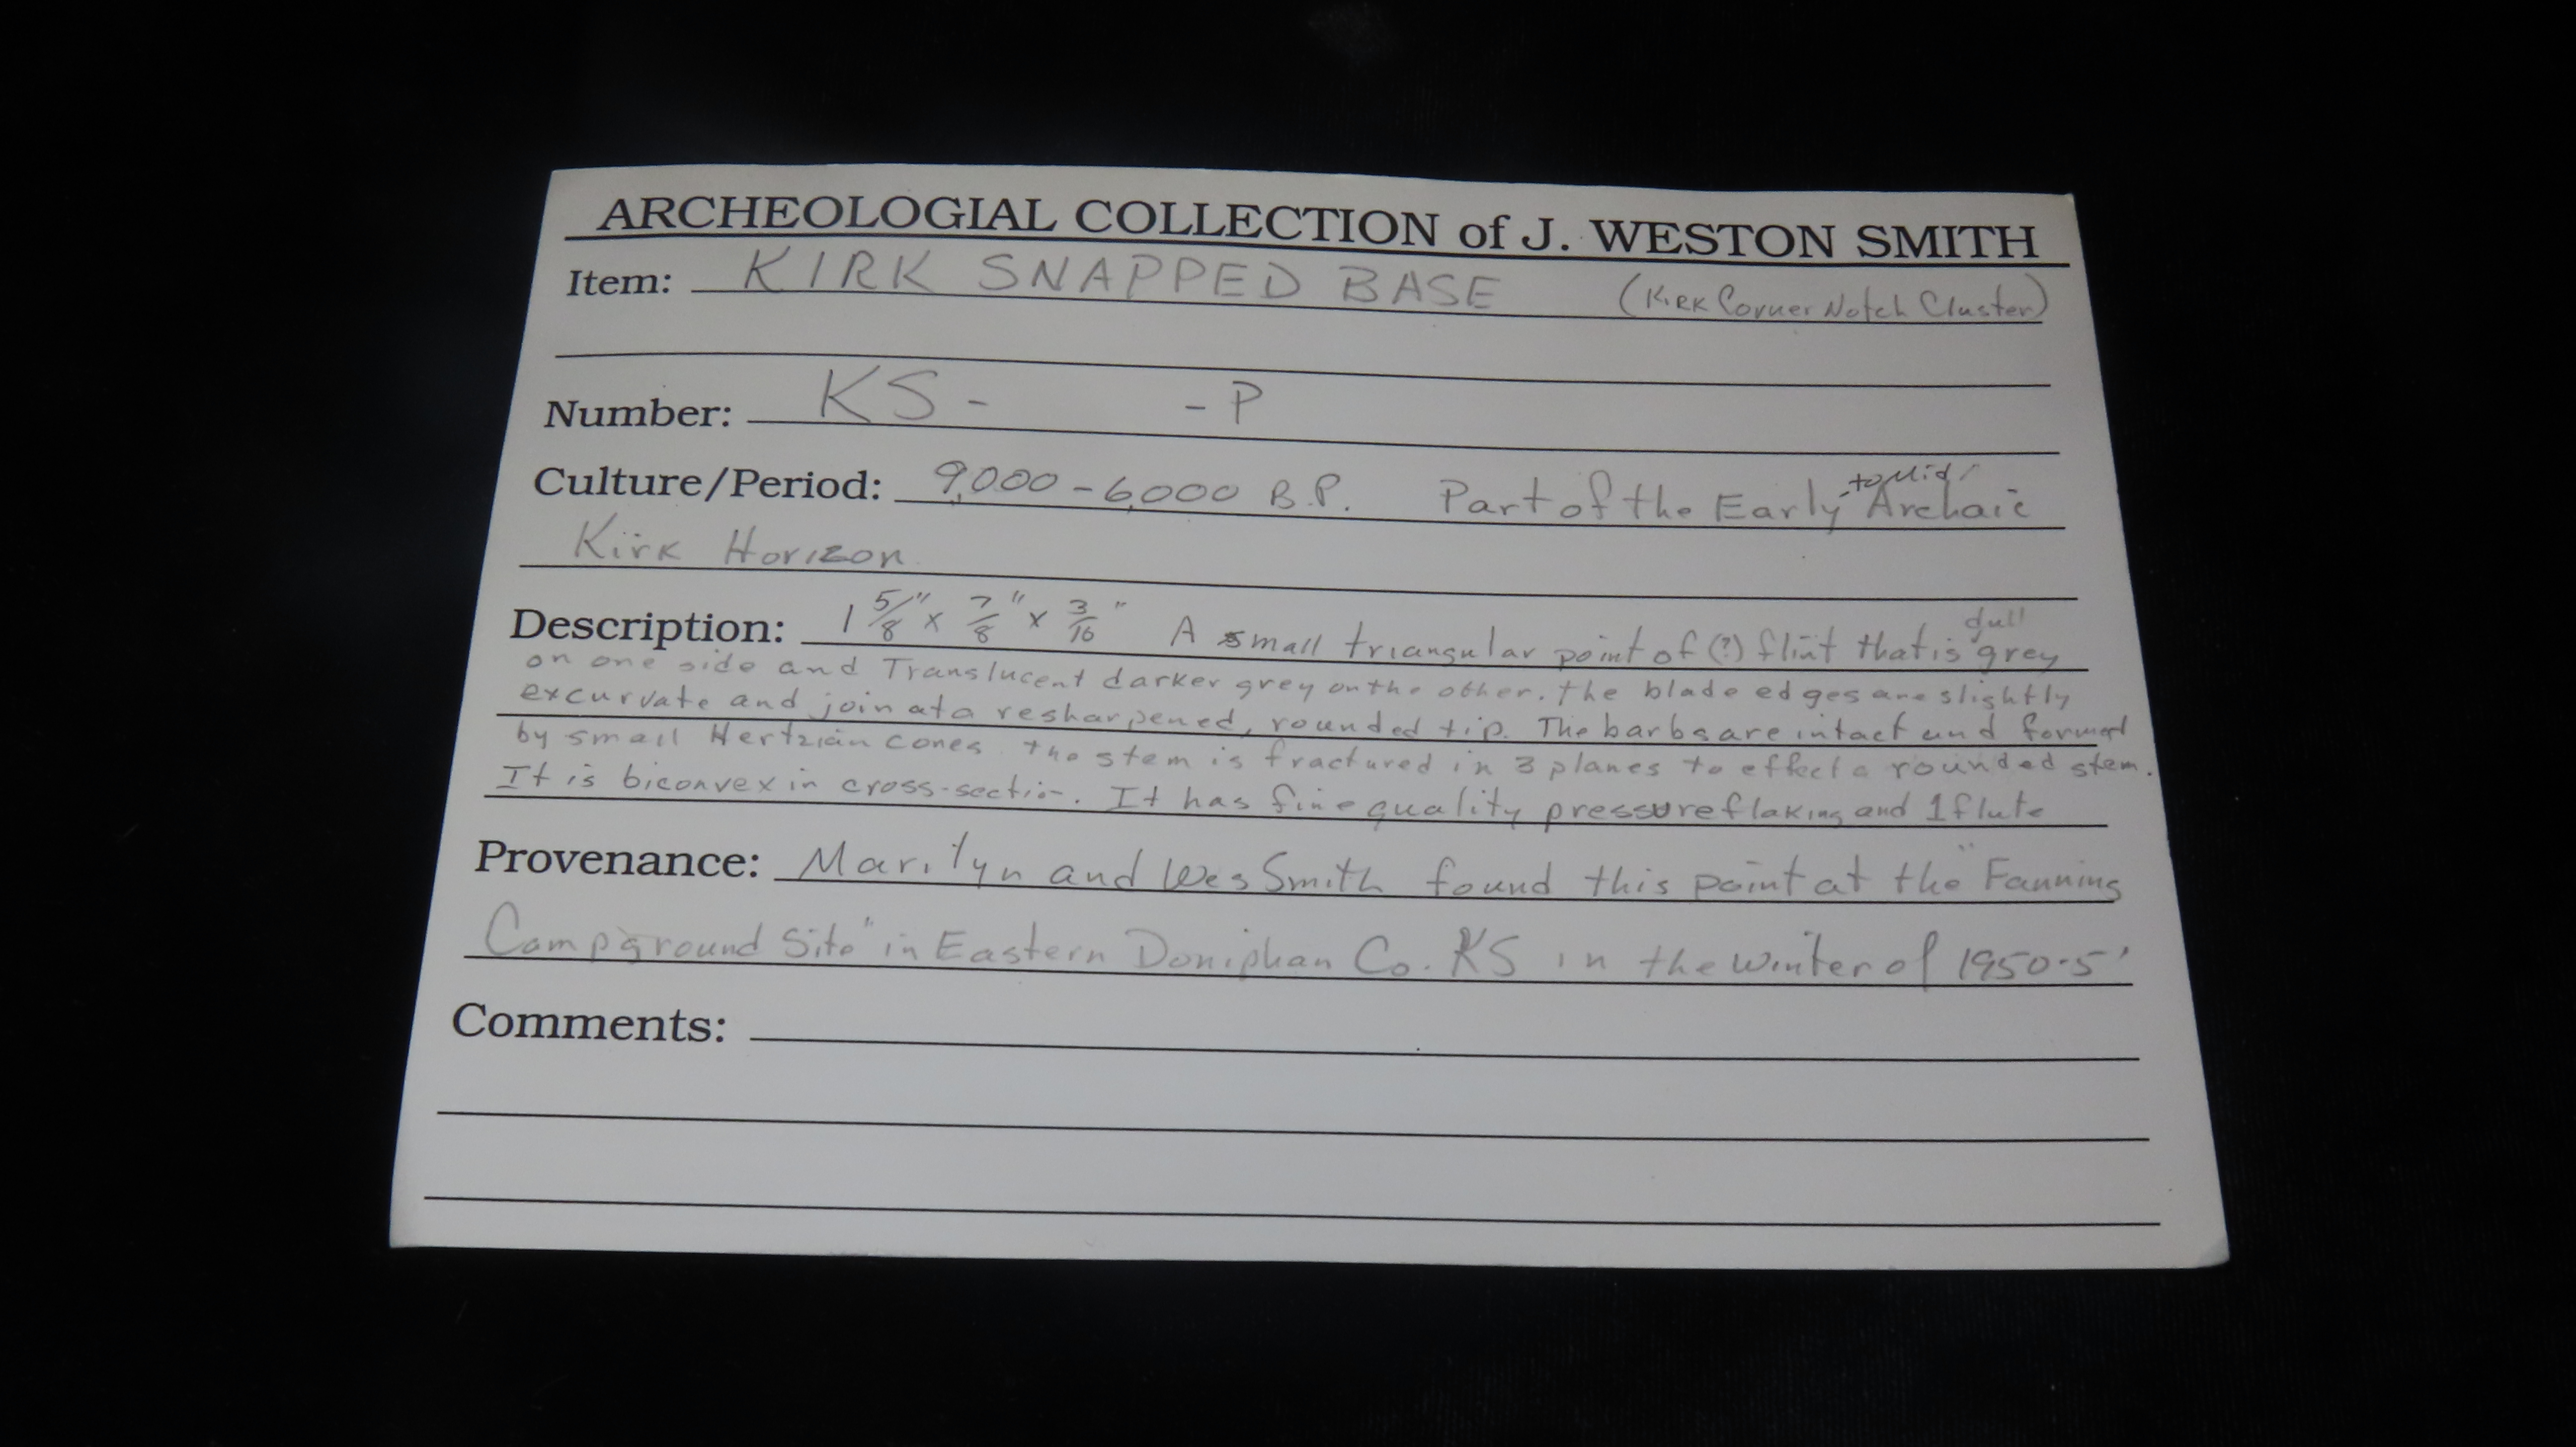 ARCHEOLOGIAL COLLECTION of J. WESTON SMITH
Item: KIRK SNAPPED BASE (Kirk Corner Notch Cluster)
Number: KS- -P
Culture/Period: 9,000-6,000 B.P. Part of the Early -to Mid Archaic
Kirk Horizon
Description: 1 5/8" x 7/8" x 3/16" A small triangular point of (?) flint that is dull grey
on one side and Translucent darker grey on the other. The blade edges are slightly
excurvate and join at a resharpened, rounded tip. The barbs are intact and formed
by small Hertzian cones. The stem is fractured in 3 planes to effect a rounded stem.
It is biconvex in cross-section. It has fine quality pressure flaking and 1 flute
Provenance: Marilyn and Wes Smith found this point at the "Fanning
Campground Site" in Eastern Doniphan Co. KS in the winter of 1950-5'
Comments: